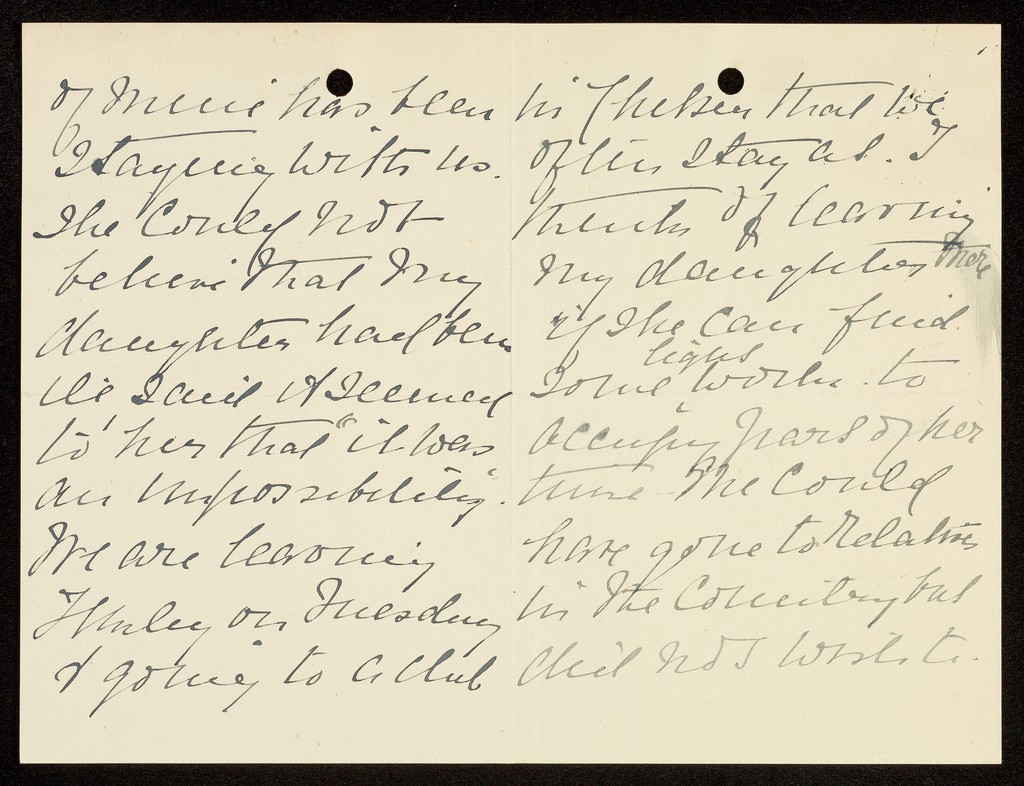 of mine has been
staying with us.
She could not
believe that my
daughter had been
ill said it seemed
to her that "it was
an impossibility".
We are leaving
Henley on Tuesday
& going to a club
in Chelsea that we
often stay at. I
think of leaving
my daughter there
if she can find
light
some work to
occupy part of her
time she could
have gone to relatives
in the country but
did not wish to.